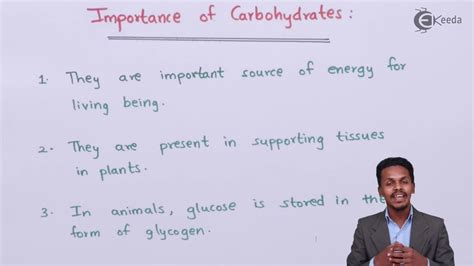 Importance of Carbohydrates :
Ekeeda
1. They are important source of energy for
living being.
2. They are present in supporting tissues
in plants.
3. In animals, glucose is stored in the
form of glycogen.